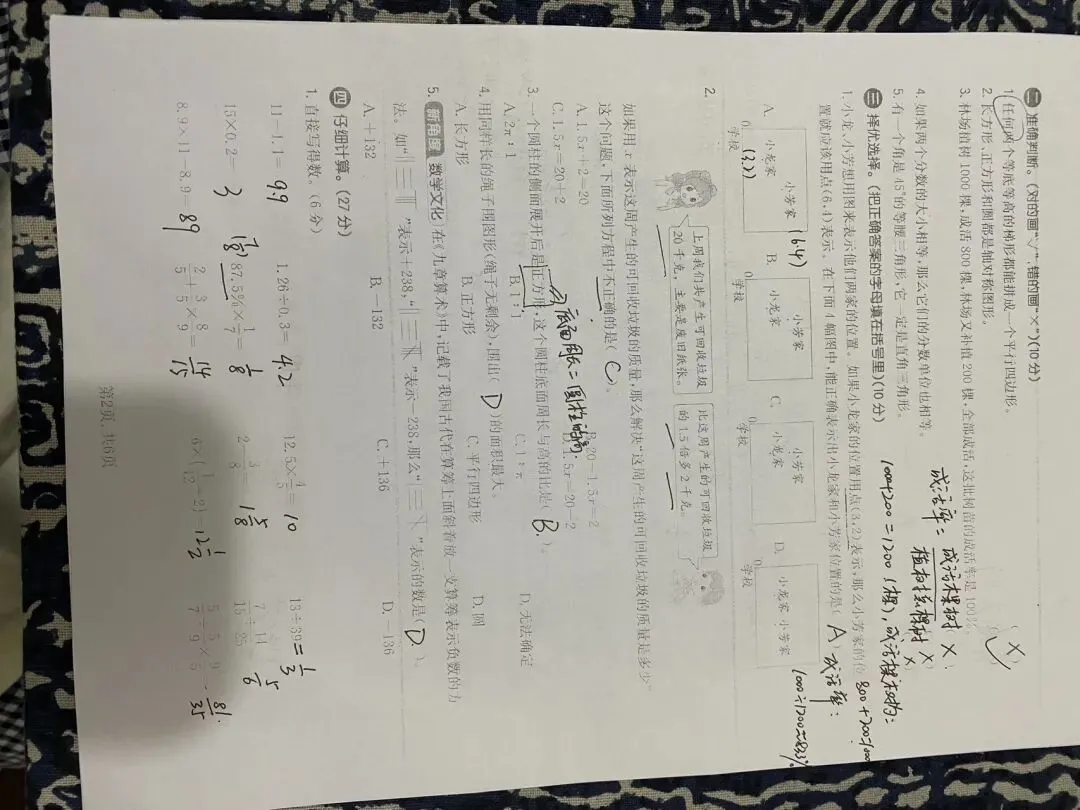 二 准确判断。(对的画“√”,错的画“×”)(10分)
1. 任何两个等底等高的梯形都能拼成一个平行四边形。 (X)
2. 长方形、正方形和圆都是轴对称图形。 (✓)
3. 林场植树1000棵,成活800棵,林场又补植200棵,全部成活,这批树苗的成活率是100%。 (X)
成活率= 成活棵树/植树总棵树
4. 如果两个分数的大小相等,那么它们的分数单位也相等。 (X)
5. 有一个角是45°的等腰三角形,它一定是直角三角形。
1000+200=1200(棵),成活棵树为:
800+200=1000
成活率:
1000÷1200≈83.3%
三 择优选择。(把正确答案的字母填在括号里)(10分)
1. 小龙、小芳想用图来表示他们两家的位置。如果小龙家的位置用点(3,2)表示,那么小芳家的位
置就应该用点(6,4)表示。在下面4幅图中,能正确表示出小龙家和小芳家位置的是( A )
A. 小芳家 (6.4) 小龙家 (3.2) 0 学校
B. 小芳家 小龙家 0 学校
C. 小芳家 小龙家 0 学校
D. 小龙家 小芳家 0 学校
2.
上周我们共产生可回收垃圾
20千克,主要是废旧纸张。
比这周产生的可回收垃圾
的1.5倍多2千克。
如果用x表示这周产生的可回收垃圾的质量,那么解决“这周产生的可回收垃圾的质量是多少”
这个问题,下面所列方程中不正确的是( C )。
A. 1.5x+2=20 B. 20-1.5x=2
C. 1.5x=20+2 D. 1.5x=20-2
3. 一个圆柱的侧面展开后是正方形,这个圆柱底面周长与高的比是( B. )。
底面周长=圆柱的高.
A. 2π:1 B. 1:1 C. 1:π D. 无法确定
4. 用同样长的绳子围图形(绳子无剩余),围出( D )的面积最大。
A. 长方形 B. 正方形 C. 平行四边形 D. 圆
5. 新角度 数学文化 在《九章算术》中,记载了我国古代在算筹上面斜着放一支算筹表示负数的方
法。如“ ”表示+238,“ ”表示-238,那么“ ”表示的数是( D. )。
A. +132 B. -132 C. +136 D. -136
四 仔细计算。(27分)
1. 直接写得数。(6分)
11-1.1= 9.9 1.26÷0.3= 4.2 12.5×4/5= 10 13÷39= 1/3
15×0.2= 3 (7/8) 87.5%×1/7= 1/8 2-3/8= 1 5/8 7/15÷14/25= 5/6
8.9×11-8.9= 89 2/5+3/5×8/9= 14/15 6×(1/12+2)= 12 1/2 5/7÷5/9×9/5= 81/35
第2页,共6页